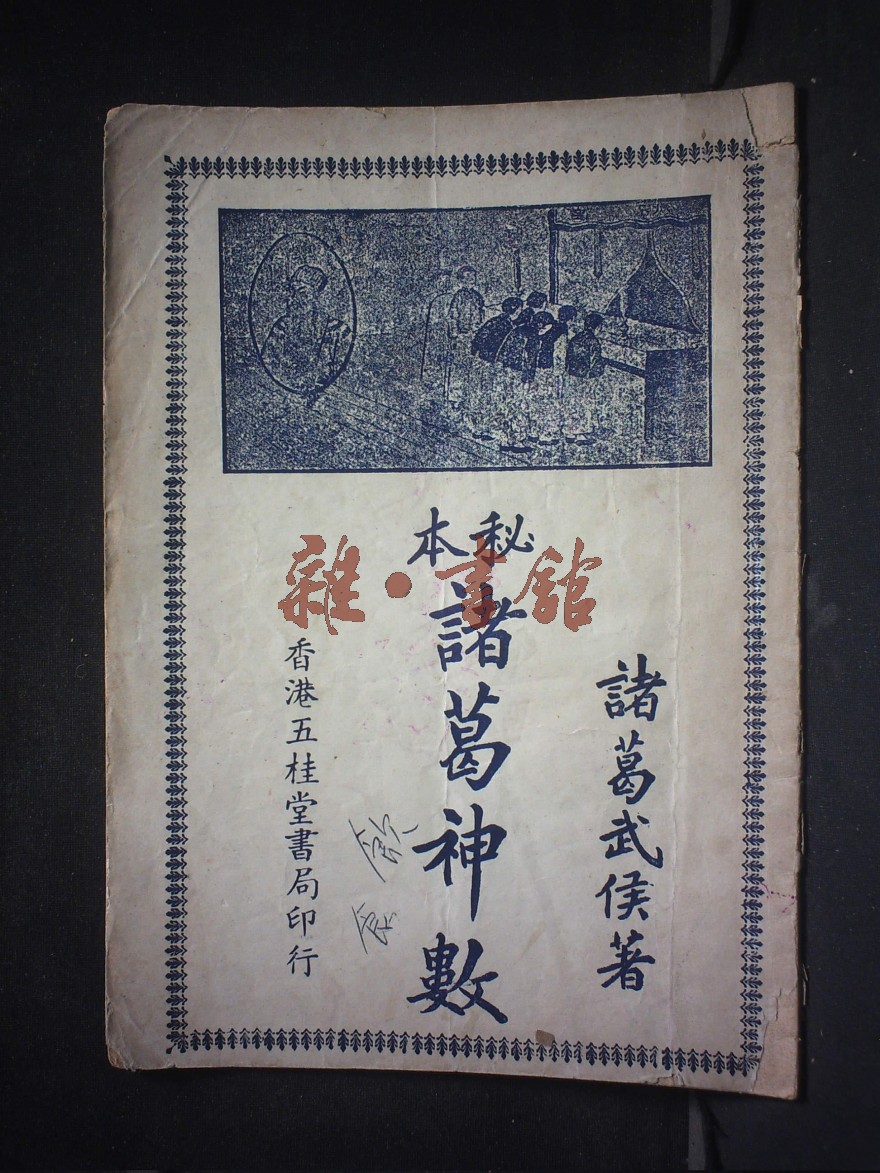 秘本
諸葛神數
諸葛武侯著
香港五桂堂書局印行
雜·書館